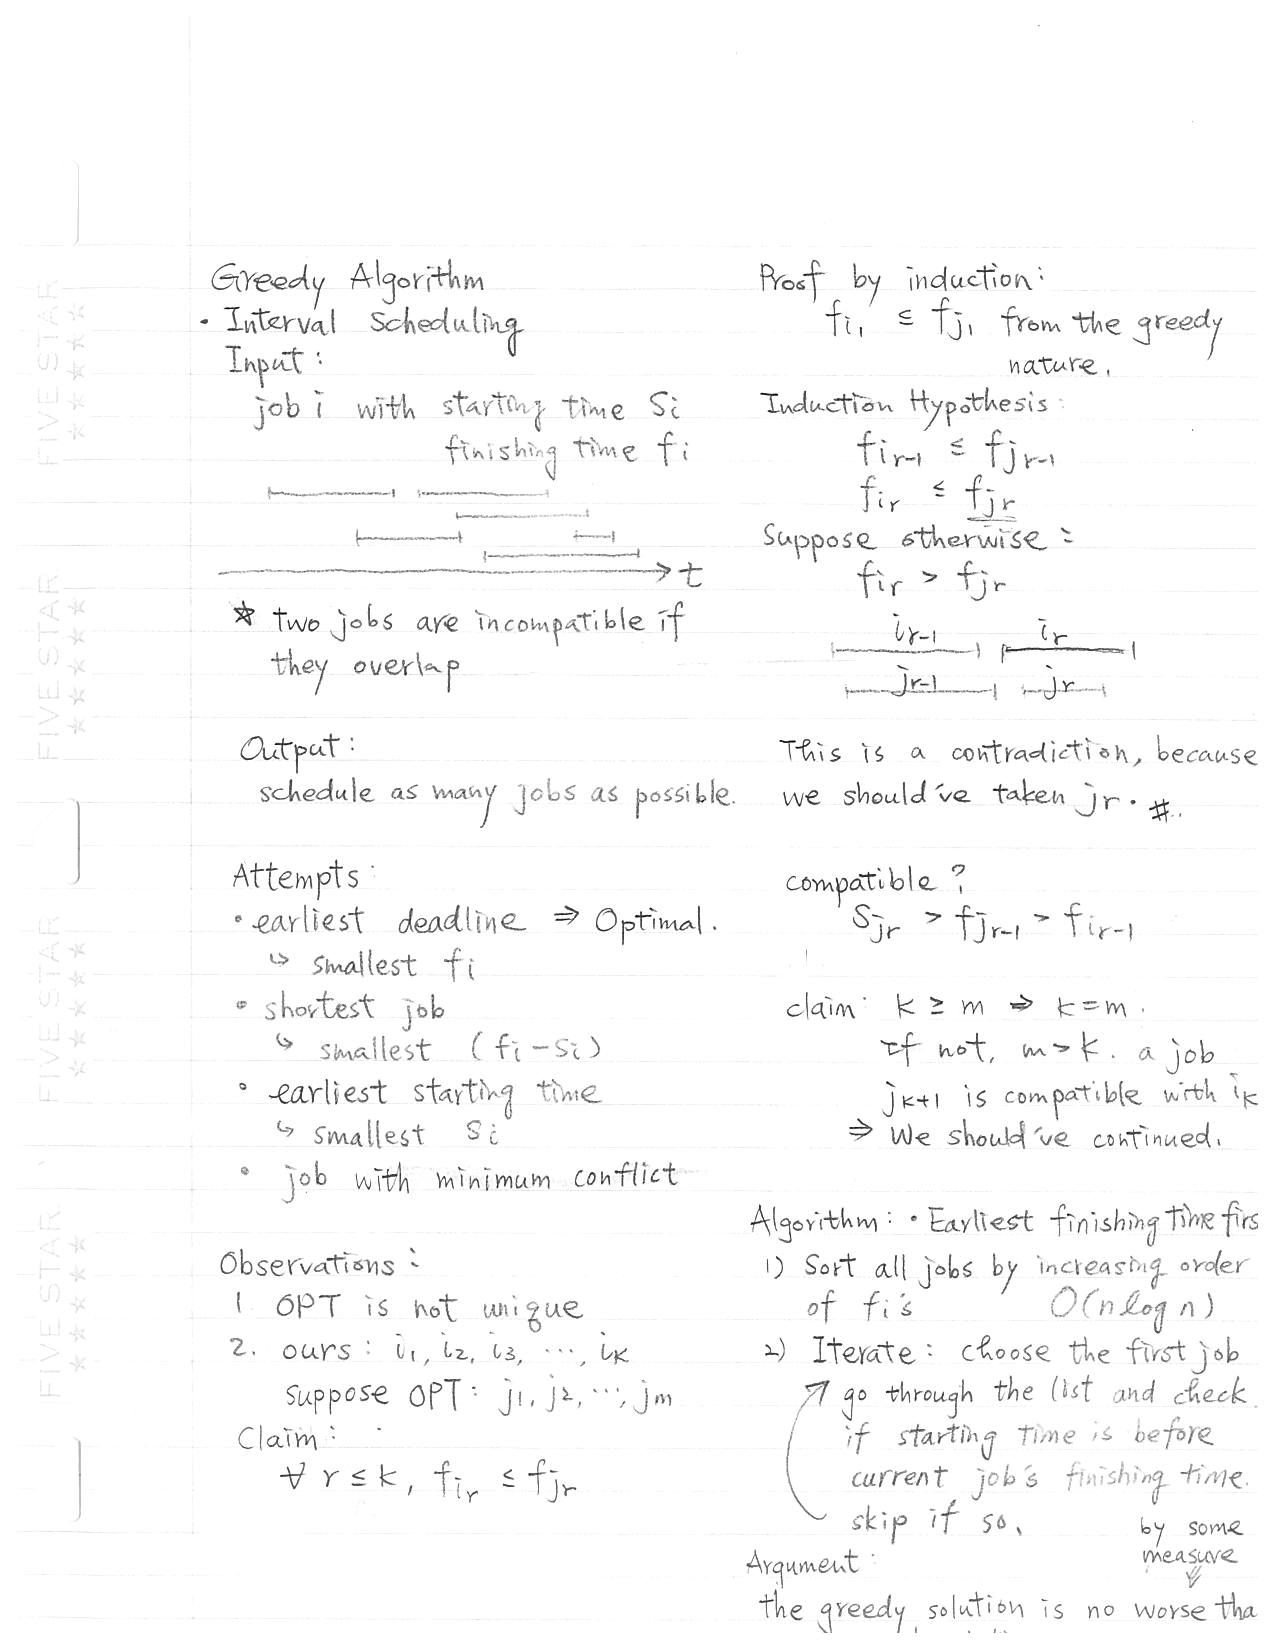 Greedy Algorithm
• Interval Scheduling
Input:
job i with starting time Si
finishing time fi
t
* two jobs are incompatible if
they overlap
Output:
schedule as many jobs as possible.
Attempts:
• earliest deadline ⇒ Optimal.
↳ smallest fi
• shortest job
↳ smallest (fi - Si)
• earliest starting time
↳ smallest Si
• job with minimum conflict
Observations:
1. OPT is not unique
2. ours: i1, i2, i3, ..., ik
suppose OPT: j1, j2, ..., jm
Claim:
∀ r ≤ k, fir ≤ fjr
Proof by induction:
fi1 ≤ fj1 from the greedy
nature.
Induction Hypothesis:
fir-1 ≤ fjr-1
fir ≤ fjr
Suppose otherwise:
fir > fjr
ir-1 ir
jr-1 jr
This is a contradiction, because
we should've taken jr. #.
compatible?
Sjr > fjr-1 > fir-1
claim: k ≥ m ⇒ k = m.
If not, m > k. a job
jk+1 is compatible with ik
⇒ We should've continued.
Algorithm: • Earliest finishing time firs
1) Sort all jobs by increasing order
of fi's O(n log n)
2) Iterate: choose the first job
go through the list and check
if starting time is before
current job's finishing time.
skip if so.
by some
measure
Argument:
the greedy solution is no worse tha
FIVE STAR
FIVE STAR
FIVE STAR
FIVE STAR